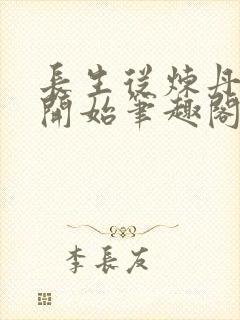 長生從煉丹
開始筆趣閣
李長友